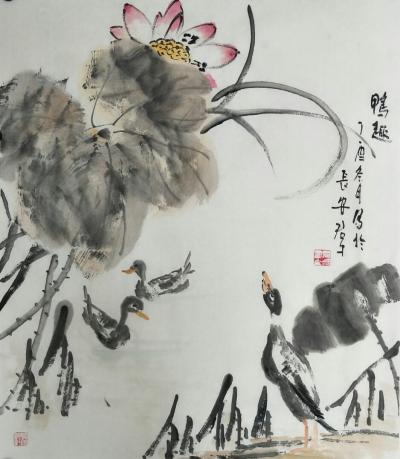 鴨趣
丁酉冬月写於
長安